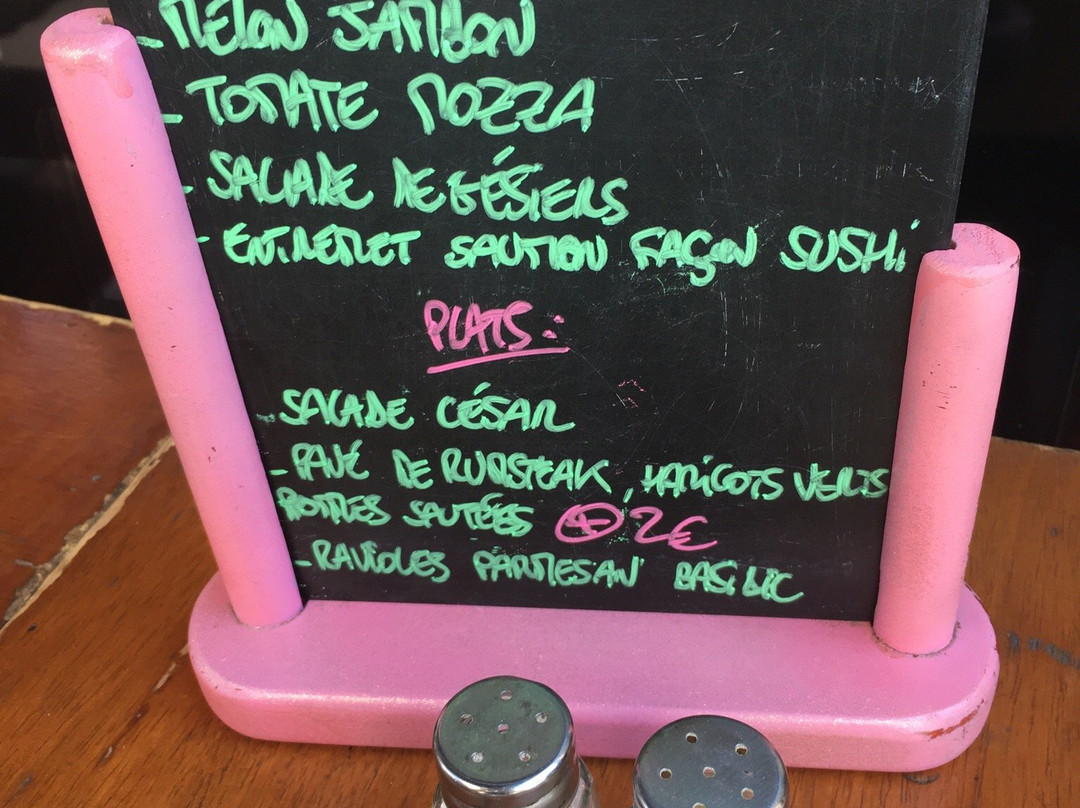 - MELON JAMBON
- TOMATE MOZZA
- SALADE DE GÉSIERS
- ENTREMET SAUMON FAÇON SUSHI
PLATS :
- SALADE CÉSAR
- PAVÉ DE RUMSTEAK, HARICOTS VERTS
POMMES SAUTÉES + 2€
- RAVIOLES PARMESAN BASILIC